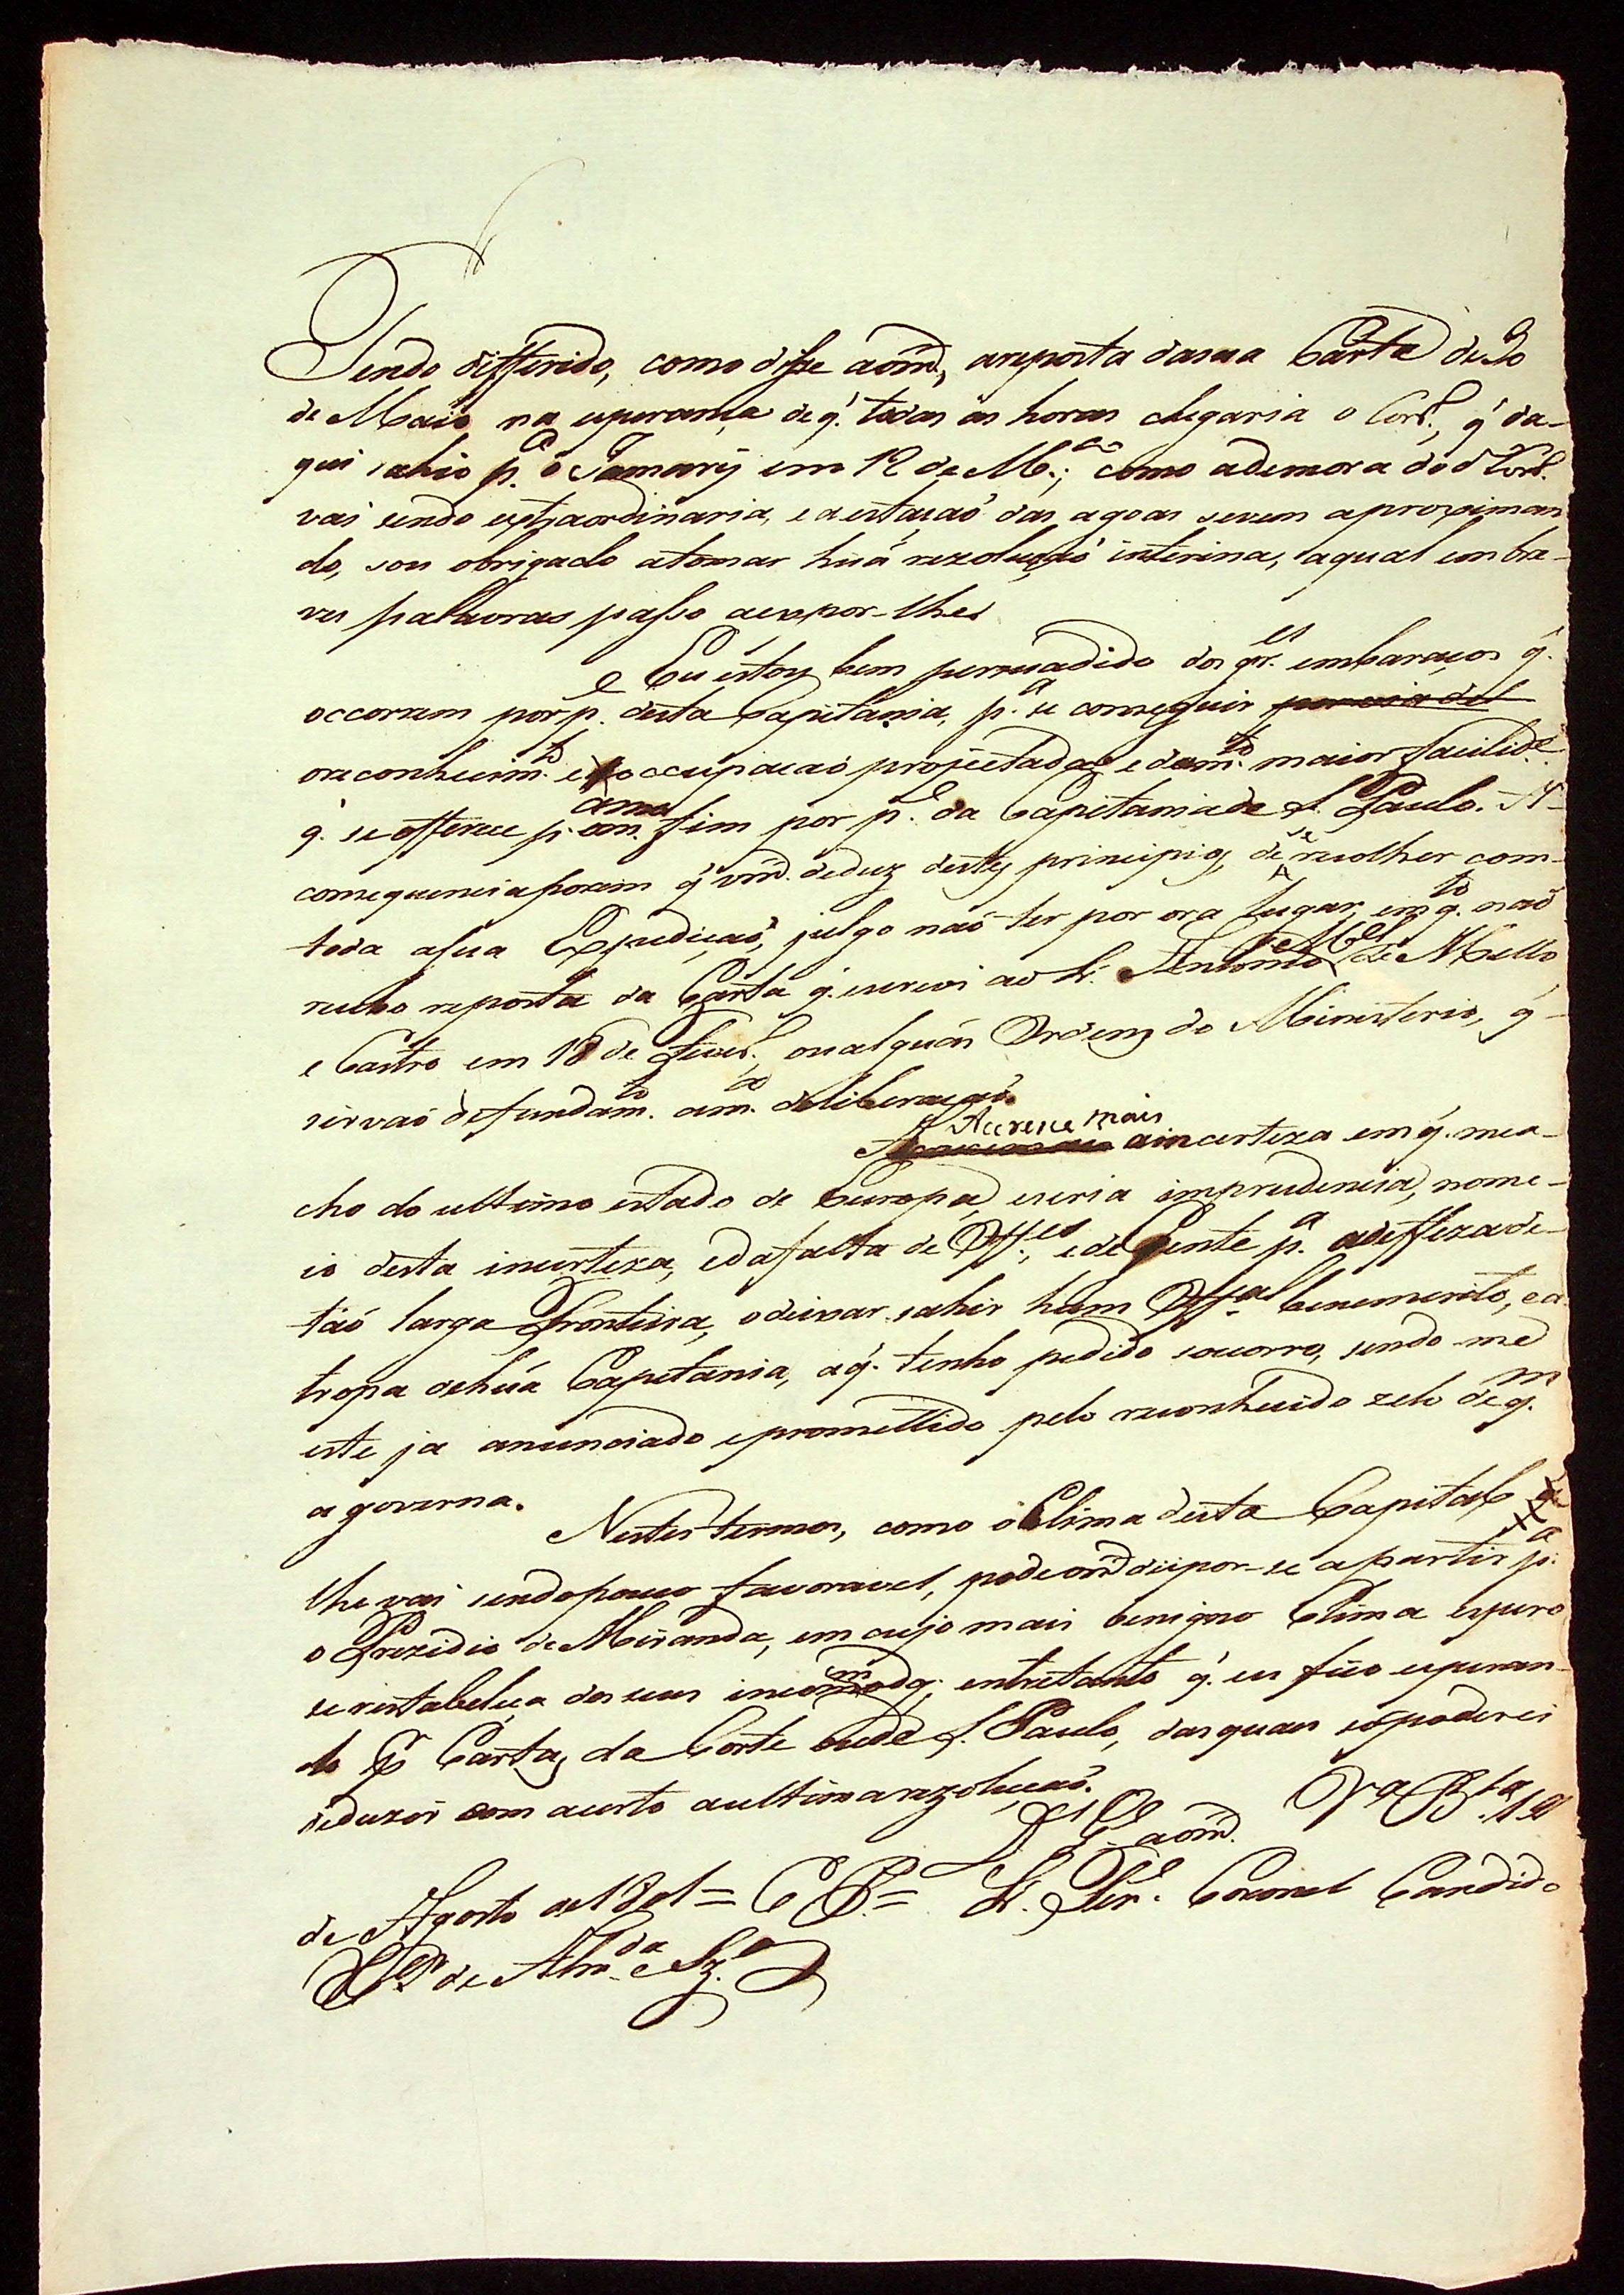 Tendo differido, como disse a vm.ce, a reposta da sua Carta de 20
de Maio na esperança de q̃. todas as horas chegaria o Corr.o, q̃ da-
qui sahio p.a o Tamary em 12 de M.ço; como a demora do d.o Corr.o
vai sendo extraordinaria, e a estação das agoas se vem aproximan
do, sou obrigado a tomar húa rezolução interina, a qual em bre-
ves palavras passo a expor-lhe.
Eu estou bem persuadido dos gr.es embaraços q̃.
occorrem por p.e desta Capitania, p.a se conseguir
o reconhecim.to e occupação projectada, e da m.to maior facilid.e
q̃. se offerece p.a o m.mo fim por p.e da Capitania de S. Paulo. A
consequencia porem q̃ vm.ce deduz destes principios, de se recolher com
toda a sua Expedição, julgo não ter por ora lugar, em q.to não
recebo reposta da Carta q̃. escrevi ao Sr. Antonio M.el de Mello
e Castro em 18 de Fever.o, ou algúas Ordens do Ministerio, q̃
sirvão de fundam.to a m.a deliberação.
Accresce mais a incerteza em q̃. me a-
cho do ultimo estado de Europa, e seria imprudencia, no me-
io desta incerteza, e da falta de Off.es, e de Gente p.a a deffeza de
tão larga Fronteira, o deixar sahir hum Off.al benemerito, e a
tropa de húa Capitania, a q̃. tenho pedido socorro, sendo-me
este ja anunciado e promettido pelo reconhecido zelo de q.m
a governa.
Nestes termos, como o Clima desta Capital
lhe vai sendo pouco favoravel, pode vm.ce dispor-se a partir p.a
o Prezidio de Miranda, em cujo mais benigno Clima espero
se restabeleça dos seus incomodos; entretanto q̃. eu fico esperan-
do Cartas da Corte ou de S. Paulo, das quaes só poderei
deduzir com acerto a ultima rezolução.
D.s G.e a vm.ce V.a B.la 19
de Agosto de 1801 = C P. = Sr. Ten.e Coronel Candido
X.er de Alm.da e Sz.a